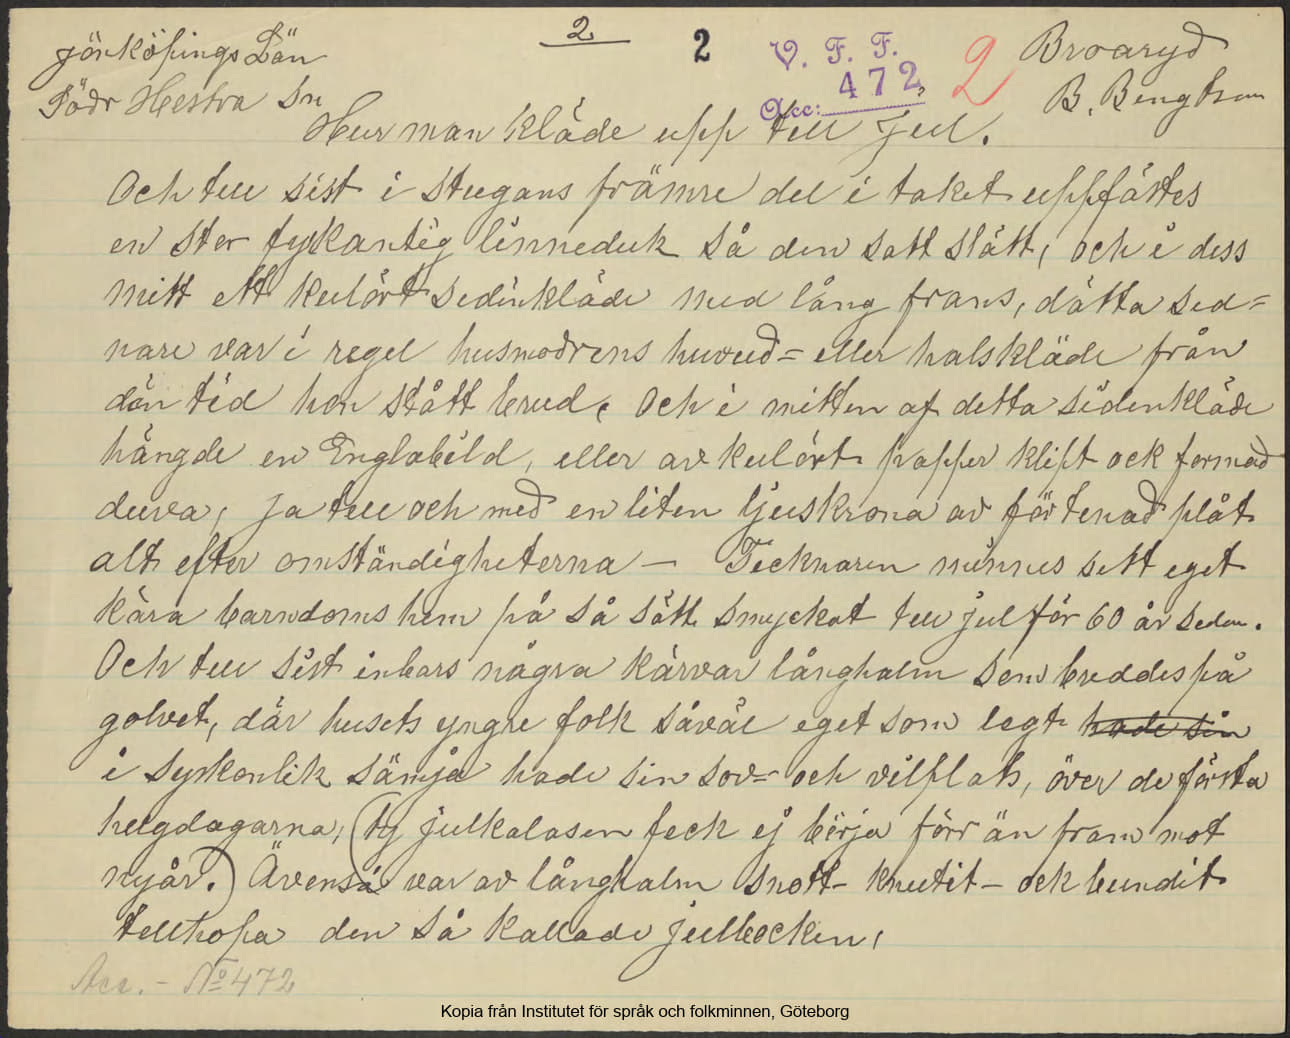 2
2
V. F. F.
Acc: 472
2
Jönköpings Län
Södr Hestra Sn
Broaryd
B. Bengtson
Hur man kläde upp till Jul.
Och till sist i stugans främre del i taket uppfästes
en stor fyrkantig linneduk så den satt slätt, och i dess
mitt ett kulört sidenkläde med lång frans, dätta sed=
nare var i regel husmodrens huvud= eller halskläde från
dän tid hon stått brud, Och i mitten af detta sidenkläde
hängde en Englabild, eller av kulört papper klipt ock formad
duva, ja till och med en liten ljuskrona av förtenad plåt
alt efter omständigheterna — Tecknaren minnes sitt eget
kära barndomshem på så sätt smyckat till jul för 60 år sedan.
Och till sist inbars några kärvar långhalm som breddes på
golvet, där husets yngre folk såväl eget som legt hade sin
i syskonlik sämja hade sin sov= och vilplats, över de första
helgdagarna, (ty julkalasen feck ej börja förr än fram mot
nyår.) Ävenså var av långhalm snott- knutit- ock bundit
tillhopa den så kallade julbocken,
Acc. - No 472
Kopia från Institutet för språk och folkminnen, Göteborg